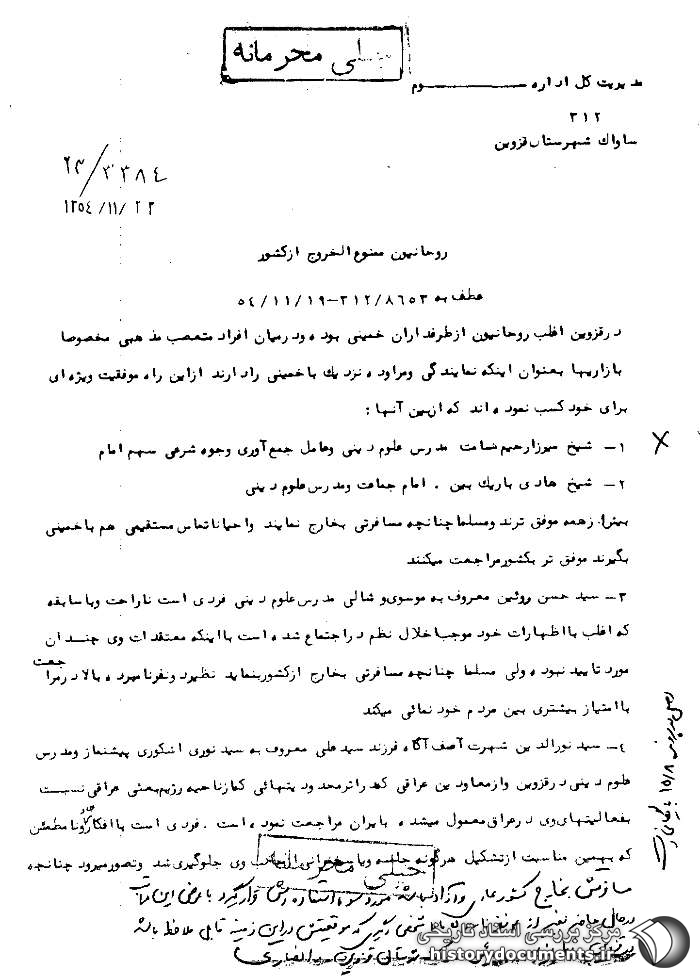 خیلی محرمانه
مدیریت کل اداره سوم
۳۱۲
ساواک شهرستان قزوین
۲۳/۳۳۸۴
۱۳۵۴/۱۱/۲۲
روحانیون ممنوع الخروج از کشور
عطف به ۳۱۲/۸۶۵۳-۵۴/۱۱/۱۹
در قزوین اغلب روحانیون از طرفداران خمینی بوده و در میان افراد متعصب مذهبی مخصوصا
بازاریها بعنوان اینکه نمایندگی و مراوده نزدیك با خمینی را دارند از این راه موفقیت ویژه ای
برای خود کسب نموده اند که از بین آنها :
۱- شیخ میرزا رحیم ضامت مدرس علوم دینی و عامل جمع آوری وجوه شرعی سهم امام
۲- شیخ هادی باریك بین . امام جماعت و مدرس علوم دینی
بیش از همه موفق ترند و مسلما چنانچه مسافرتی بخارج نمایند و احیانا تماس مستقیمی هم با خمینی
بگیرند موفق تر بکشور مراجعت میکنند
۳- سید حسن روئین معروف به موسوی و شالی مدرس علوم دینی فردی است ناراحت و با سابقه
که اغلب با اظهارات خود موجب اخلال نظم در اجتماع شده است با اینکه معتقدات وی چندان
مورد تایید نبوده ولی مسلما چنانچه مسافرتی بخارج از کشور بنماید نظیر دو نفر نامبرده بالا در مراجعت
با امتیاز بیشتری بین مردم خود نمائی میکند
۴- سید نورالدین شهرت آصف آگاه فرزند سید علی معروف به سید نوری اشکوری پیشنماز و مدرس
علوم دینی در قزوین و از معاودین عراقی که در اثر محدودیتهائی که از ناحیه رژیم بعثی عراقی نسبت
بفعالیتهای وی در عراق معمول میشده بایران مراجعت نموده است . فردی است با افکار حاد و نا مطمئن
که بهمین مناسبت از تشکیل هرگونه جلسه و یا سخنرانی وی جلوگیری شد و تصور میرود چنانچه
خیلی محرمانه
مسافرتش بخارج کشور عملی و آزاد باشد مورد سوء استفاده وی قرار گیرد با عرض این مراتب
در حال حاضر بغیر از چهار نفر شخص دیگری که موقعیتش در این زمینه قابل ملاحظه باشد
مرکز بررسی اسناد تاریخی
historydocuments.ir